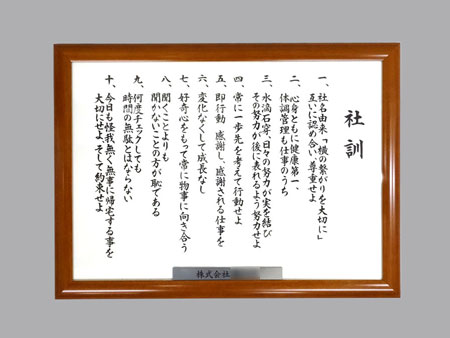 社訓
一、社名由来「横の繋がりを大切に」
互いに認め合い、尊重せよ
二、心身ともに健康第一、
体調管理も仕事のうち
三、水滴石穿、日々の努力が実を結び
その努力が後に表れるよう努力せよ
四、常に一歩先を考えて行動せよ
五、即行動 感謝し、感謝される仕事を
六、変化なくして成長なし
七、好奇心をもって常に物事に向き合う
八、聞くことよりも
聞かないことの方が恥である
九、何度チェックしても
時間の無駄とはならない
十、今日も怪我無く無事に帰宅する事を
大切にせよ、そして約束せよ
株式会社